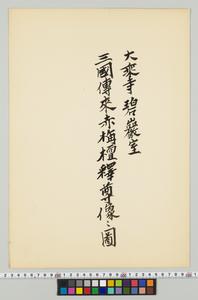 大乘寺碧巖室
三國傳來赤栴檀釋尊像之圖